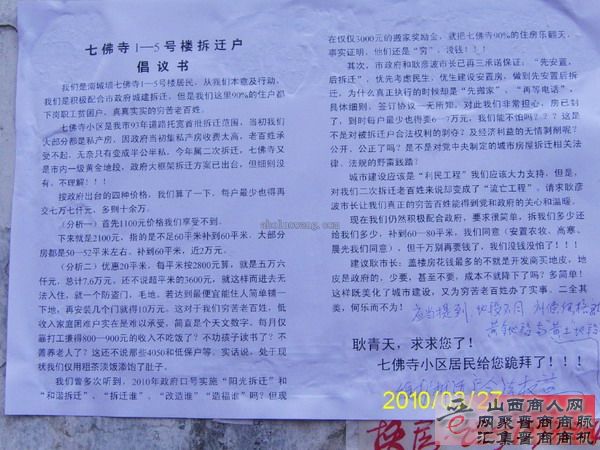 七佛寺1—5号楼拆迁户
倡议书
我们是南城墙七佛寺1—5号楼居民，从我们本意及行动，
我们是积极配合市政府城建拆迁，但是我们这里90%的住户都
下岗职工贫困户，真真实实的穷苦老百姓。
七佛寺小区是我市93年道路托宽首批拆迁范围，当初我们
大部分都是私产房，因政府当初集私产房收费太高，老百姓承
受不起，无奈只有变成半公半私，今年属二次拆迁，七佛寺又
是市内一级黄金地段，政府大框架拆迁方案已出台，但细则没
有，不理解！！！
按政府出台的四种价格，我们算了一下，每户最少也得再
交七万七仟元，多则十余万。
（分析一）首先1100元价格我们享受不到。
下来就是2100元，指的是不足60平米补到60平米，大部分
房都是50—52平米左右，补到60平米，近2万元。
（分析二）优惠20平米，每平米按2800算，就是五万六
仟元，总计7.6万元，还不说超平米的3600元，就这样而进去无
法入住，就一个防盗门，毛地，若达到最便宜能住人简单铺一
下地，再安装几个门就得10万元。这对于我们穷苦老百姓，低
收入家庭困难户实在是难以承受，简直是个天文数字，每月仅
靠打工攥得800—900元的收入不吃饭了？不功孩子读书了？不
善养老人了？这还不说那些4050和低保户等，实话说，处于现
状我们仅用粗茶淡饭添饱了肚子。
我们曾多次听到，2010年政府口号实施“阳光拆迁”和
“和谐拆迁”、“拆迁谁”、“改造谁”“造福谁”吗？但现
在仅仅3000元的搬家奖励金，就把七佛寺90%的住房乐翻天，
事实证明，他们还是“穷”，没钱！！！
其次，市政府和耿彦波市长已再三承诺保证：“先安置，
后拆迁”，优先考虑民生，优生建设安置房，做到先安置后拆
迁，为什么真正执行的时候却是“先搬家”、“再等电话”，
具体细则，签订协议一无所知，对此我们非常担心，房已到
了，到时每户最少也得卖6—7万元，我们能不怕吗？？？这是
不是对被拆迁户合法权利的剥夺？及经济利益的无情剥削呢？
公开、公正了吗？是不是对党中央制定的城市房屋拆迁相关法
律、法规的野蛮践踏？
城市建设应该是“利民工程”我们应该大力支持，但是，
对我们二次拆迁老百姓来说却变成了“流亡工程”，请求耿彦
波市长让我们真正的穷苦百姓能得到党和政府的关心和温暖。
现在我们仍然积极配合政府，要求很简单，拆我们多少还
给我们多少，补到60—80平米，我们同意（安置农牧、高寒、
晨光我们同意），但千万别再要钱了，我们没钱没怕了！！！
建议耿市长：盖楼房花钱最多的不就是开发商买地皮，地
皮是政府的，少要，甚至不要，成本不就降下了吗？多简单！
这样既美化了城市建设，又为穷苦老百姓办了实事。二全其
美，何乐而不为！
应当提到，地段不同
耿青天，求求您了！
七佛寺小区居民给您跪拜了！！！
2010/03/27
aboluowang.com
山西商人网
网聚晋商商脉
汇集晋商商机